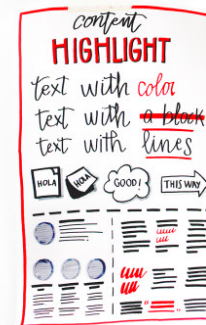 content
HIGHLIGHT
text with color
text with a block
text with lines
HOLA HOLA GOOD! THIS WAY